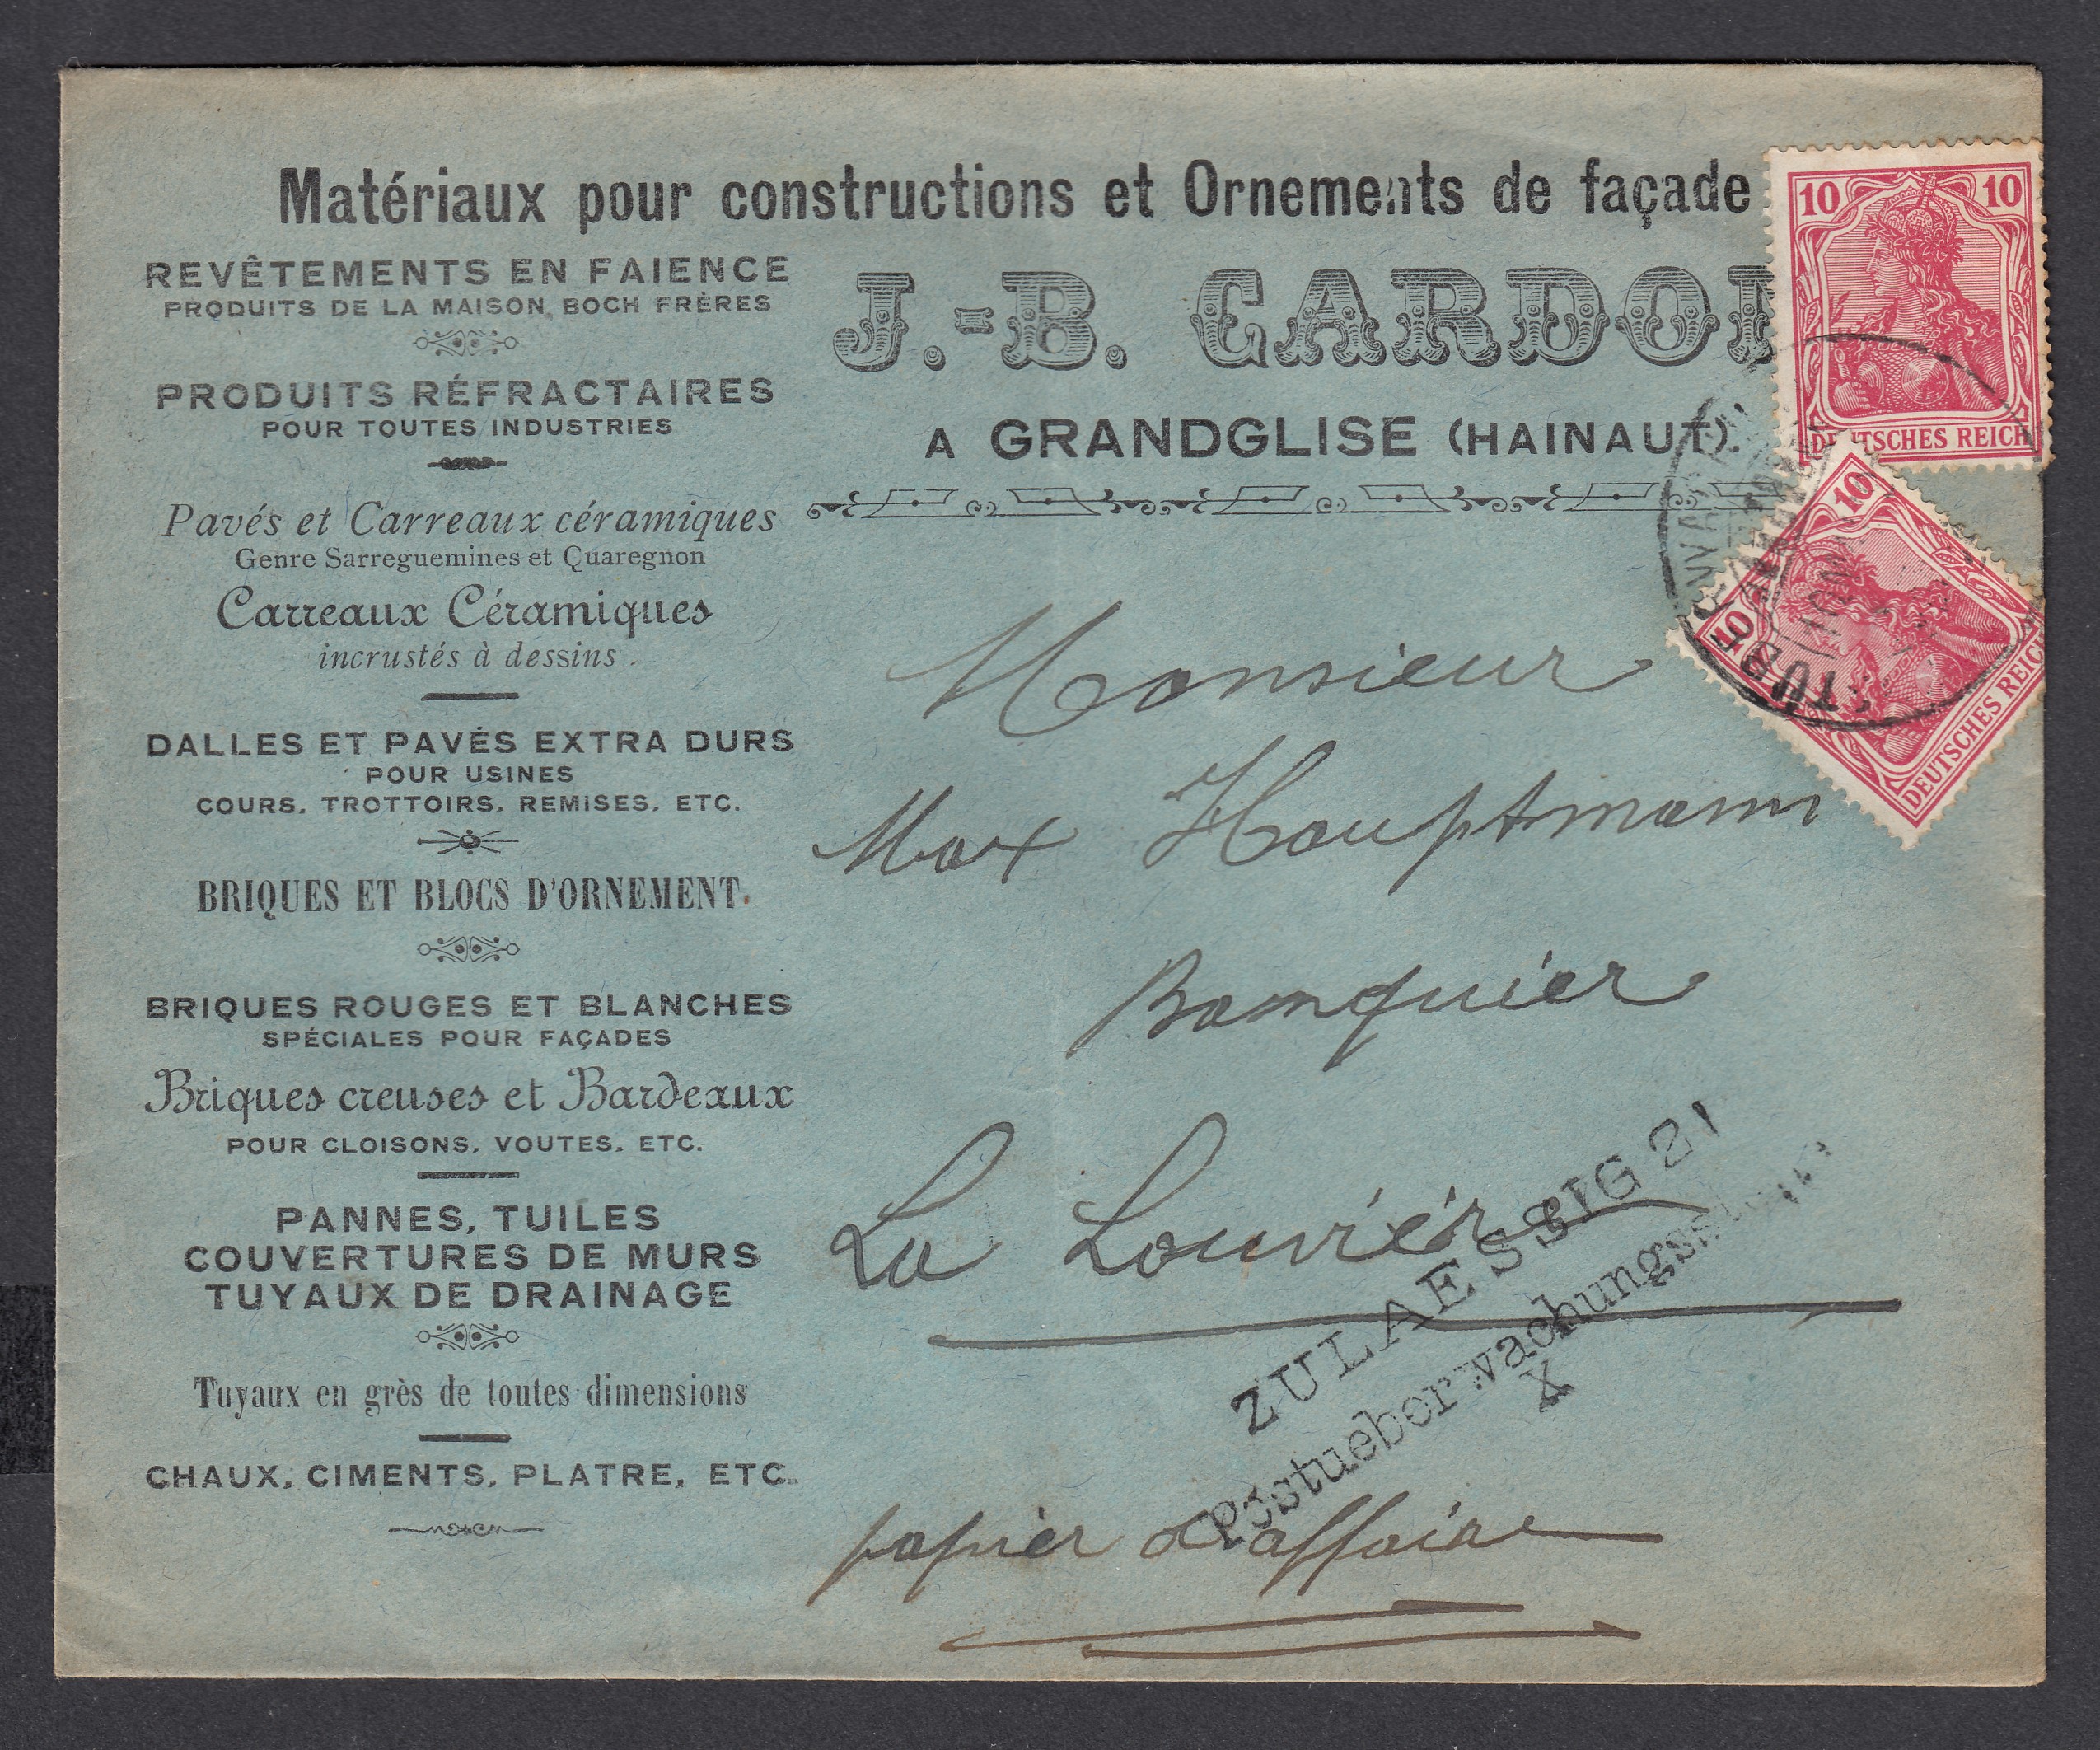 Matériaux pour constructions et Ornements de façade
REVÊTEMENTS EN FAIENCE
PRODUITS DE LA MAISON BOCH FRÈRES
PRODUITS RÉFRACTAIRES
POUR TOUTES INDUSTRIES
Pavés et Carreaux céramiques
Genre Sarreguemines et Quaregnon
Carreaux Céramiques
incrustés à dessins.
DALLES ET PAVÉS EXTRA DURS
POUR USINES
COURS, TROTTOIRS, REMISES, ETC.
BRIQUES ET BLOCS D'ORNEMENT.
BRIQUES ROUGES ET BLANCHES
SPÉCIALES POUR FAÇADES
Briques creuses et Bardeaux
POUR CLOISONS, VOUTES, ETC.
PANNES, TUILES
COUVERTURES DE MURS
TUYAUX DE DRAINAGE
Tuyaux en grès de toutes dimensions
CHAUX, CIMENTS, PLATRE, ETC.
J.-B.
A GRANDGLISE (HAINAUT).
10 10
DEUTSCHES REICH
10 10
DEUTSCHES REICH
Monsieur
Max Hauptmann
Banquier
La Louvièr
ZULAESSIG 21
X
papier d'affaire